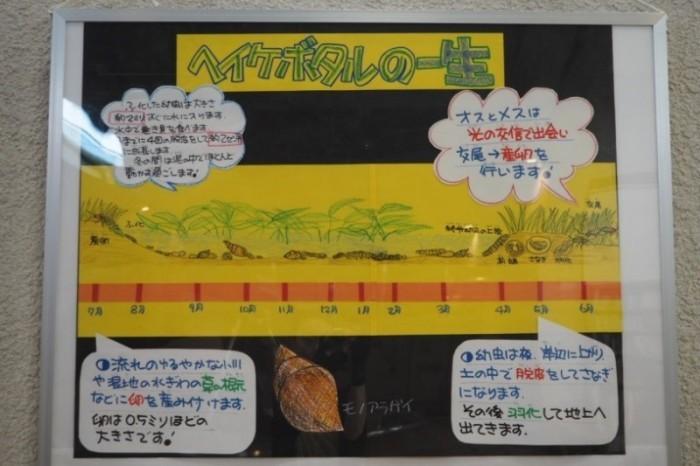 ヘイケボタルの一生
ふ化した幼虫は大きさ
すぐに水に入ります。
水中で巻き貝を食べ
までに4回の脱皮をして
に成長します。
冬の間は泥の中でほとんど
動かず過ごします!
オスとメスは
光の交信で出会い
交尾→産卵を
行います!
ふ化
産卵
さなぎ
7月 8月 9月 10月 11月 12月 1月 2月 3月 4月 5月 6月
流れのゆるやかな小川
や湿地の水ぎわの草の根元
などに卵を産み付けます。
卵は0.5ミリほどの
大きさです!
モノアラガイ
幼虫は夜、岸辺に上がり、
土の中で脱皮をしてさなぎ
になります。
その後羽化して地上へ
出てきます。